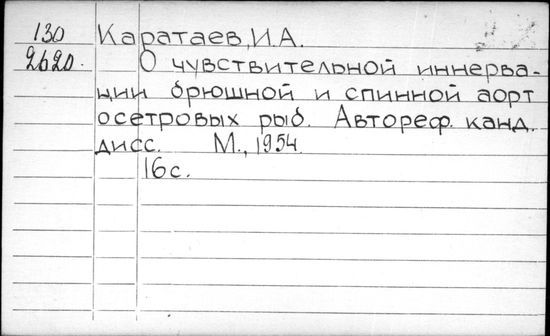 130 Каратаев, И.А.
2620. О чувствительной иннерва-
ции брюшной и спинной аорт
осетровых рыб. Автореф. канд.
дисс. М., 1954.
16 с.